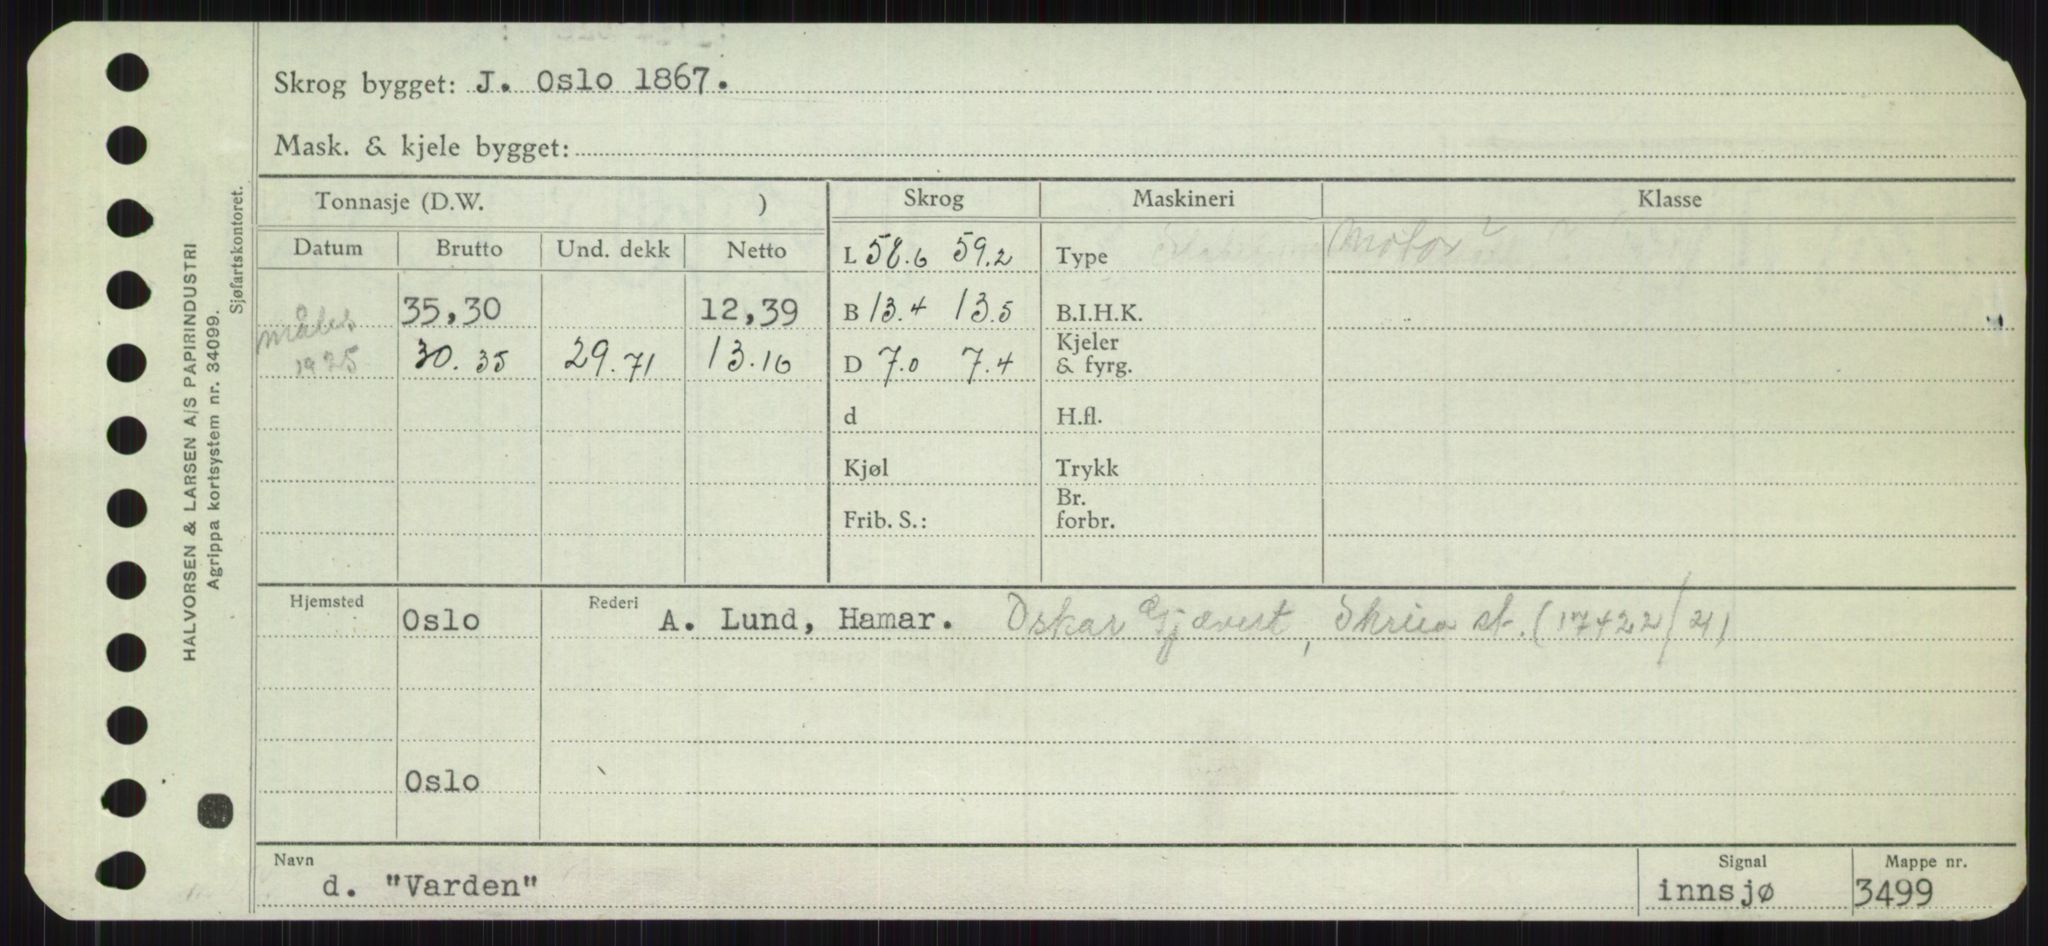 Skrog bygget: J. Oslo 1867.
Mask. & kjele bygget:
Tonnasje (D.W. ) Skrog Maskineri Klasse
Datum Brutto Und. dekk Netto
L 58.6 59.2 Type Motor ?
35,30 12,39 B 13.4 13.5 B.I.H.K.
måles 1925 30.35 29.71 13.16 D 7.0 7.4 Kjeler & fyrg.
d H.fl.
Kjøl Trykk
Frib. S.: Br. forbr.
Hjemsted Oslo Rederi A. Lund, Hamar. Oskar Gjævert, Skreia st. (17422/21)
Oslo
Navn d. "Varden" Signal innsjø Mappe nr. 3499
HALVORSEN & LARSEN A/S PAPIRINDUSTRI
Agrippa kortsystem nr. 34099.
Sjøfartskontoret.